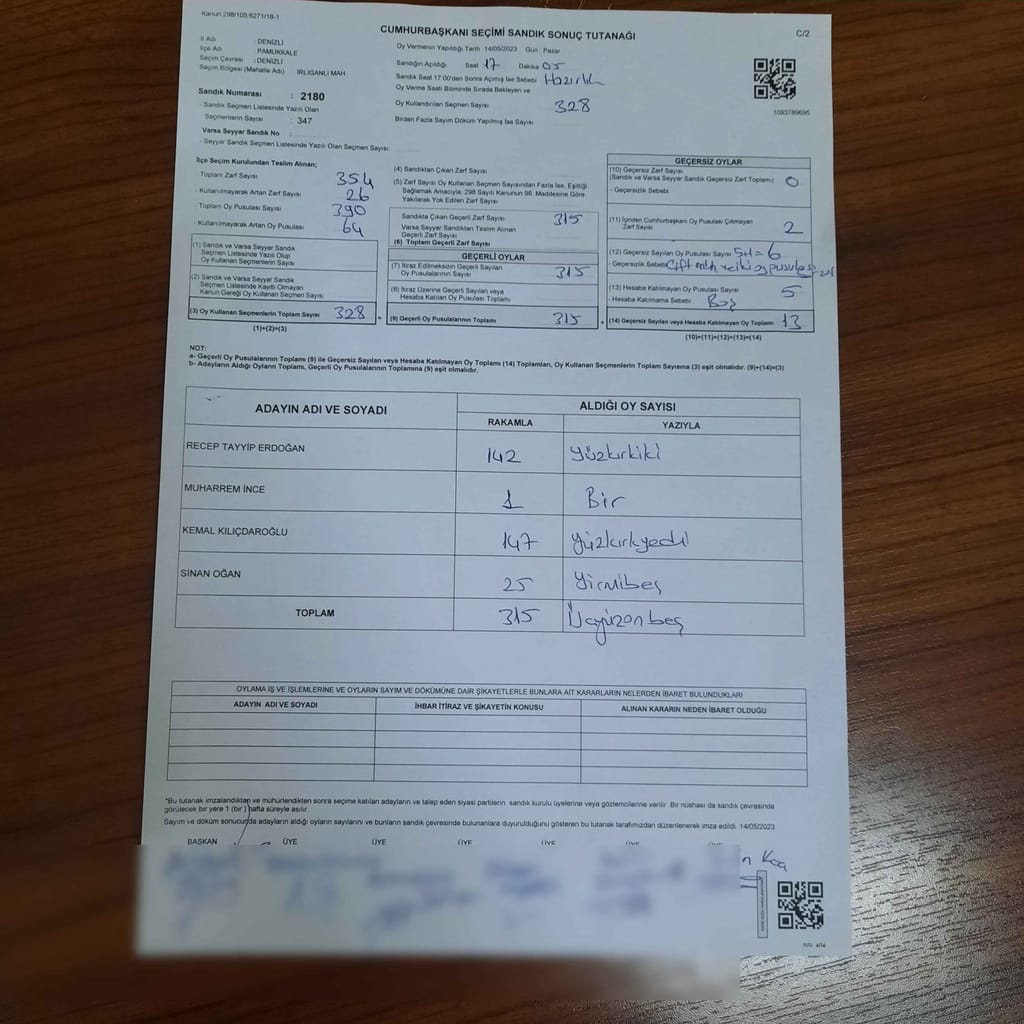 Kanun:298/105;6271/18-1
CUMHURBAŞKANI SEÇİMİ SANDIK SONUÇ TUTANAĞI
C/2
İl Adı : DENİZLİ
İlçe Adı : PAMUKKALE
Seçim Çevresi : DENİZLİ
Seçim Bölgesi (Mahalle Adı) IRLIGANLI MAH
Sandık Numarası : 2180
- Sandık Seçmen Listesinde Yazılı Olan
Seçmenlerin Sayısı : 347
Varsa Seyyar Sandık No :
- Seyyar Sandık Seçmen Listesinde Yazılı Olan Seçmen Sayısı
Oy Vermenin Yapıldığı Tarih :14/05/2023 Gün : Pazar
Sandığın Açıldığı Saat 17 Dakika 05
Sandık Saat 17.00'den Sonra Açılmış İse Sebebi Hazırlık
Oy Verme Saati Bitiminde Sırada Bekleyen ve
Oy Kullandırılan Seçmen Sayısı 328
Birden Fazla Sayım Döküm Yapılmış İse Sayısı
1093789695
İlçe Seçim Kurulundan Teslim Alınan;
- Toplam Zarf Sayısı 354
- Kullanılmayarak Artan Zarf Sayısı 26
- Toplam Oy Pusulası Sayısı 390
- Kullanılmayarak Artan Oy Pusulası 64
(1) Sandık ve Varsa Seyyar Sandık
Seçmen Listesinde Yazılı Olup
Oy Kullanan Seçmenlerin Sayısı
(2) Sandık ve Varsa Seyyar Sandık
Seçmen Listesinde Kayıtlı Olmayan
Kanun Gereği Oy Kullanan Seçmen Sayısı
(3) Oy Kullanan Seçmenlerin Toplam Sayısı 328
(1)+(2)=(3)
(4) Sandıktan Çıkan Zarf Sayısı
(5) Zarf Sayısı Oy Kullanan Seçmen Sayısından Fazla İse, Eşitliği
Sağlamak Amacıyla; 298 Sayılı Kanunun 98. Maddesine Göre
Yakılarak Yok Edilen Zarf Sayısı
Sandıkta Çıkan Geçerli Zarf Sayısı 315
Varsa Seyyar Sandıktan Teslim Alınan
Geçerli Zarf Sayısı
(6) Toplam Geçerli Zarf Sayısı
GEÇERLİ OYLAR
(7) İtiraz Edilmeksizin Geçerli Sayılan
Oy Pusulalarının Sayısı 315
(8) İtiraz Üzerine Geçerli Sayılan veya
Hesaba Katılan Oy Pusulası Toplamı
= (9) Geçerli Oy Pusulalarının Toplamı 315
GEÇERSİZ OYLAR
(10) Geçersiz Zarf Sayısı
(Sandık ve Varsa Seyyar Sandık Geçersiz Zarf Toplamı) 0
- Geçersizlik Sebebi
(11) İçinden Cumhurbaşkanı Oy Pusulası Çıkmayan
Zarf Sayısı 2
(12) Geçersiz Sayılan Oy Pusulası Sayısı 5+1=6
- Geçersizlik Sebebi Çift
(13) Hesaba Katılmayan Oy Pusulası Sayısı 5
- Hesaba Katılmama Sebebi Boş
+ (14) Geçersiz Sayılan veya Hesaba Katılmayan Oy Toplamı 13
(10)+(11)+(12)+(13)=(14)
NOT:
a- Geçerli Oy Pusulalarının Toplamı (9) ile Geçersiz Sayılan veya Hesaba Katılmayan Oy Toplamı (14) Toplamları, Oy Kullanan Seçmenlerin Toplam Sayısına (3) eşit olmalıdır. (9)+(14)=(3)
b- Adayların Aldığı Oyların Toplamı, Geçerli Oy Pusulalarının Toplamına (9) eşit olmalıdır.
ADAYIN ADI VE SOYADI ALDIĞI OY SAYISI
RAKAMLA YAZIYLA
RECEP TAYYİP ERDOĞAN 142 yüzkırkiki
MUHARREM İNCE 1 Bir
KEMAL KILIÇDAROĞLU 147 yüzkırkyedi
SİNAN OĞAN 25 Yirmibeş
TOPLAM 315 Üçyüzonbeş
OYLAMA İŞ VE İŞLEMLERİNE VE OYLARIN SAYIM VE DÖKÜMÜNE DAİR ŞİKAYETLERLE BUNLARA AİT KARARLARIN NELERDEN İBARET BULUNDUKLARI
ADAYIN ADI VE SOYADI İHBAR İTİRAZ VE ŞİKAYETİN KONUSU ALINAN KARARIN NEDEN İBARET OLDUĞU
*Bu tutanak imzalandıktan ve mühürlendikten sonra seçime katılan adayların ve talep eden siyasi partilerin sandık kurulu üyelerine veya gözlemcilerine verilir. Bir nüshası da sandık çevresinde
görülecek bir yere 1 (bir ) hafta süreyle asılır.
Sayım ve döküm sonucunda adayların aldığı oyların sayılarını ve bunların sandık çevresinde bulunanlara duyurulduğunu gösteren bu tutanak tarafımızdan düzenlenerek imza edildi. 14/05/2023
BAŞKAN ÜYE ÜYE ÜYE ÜYE ÜYE ÜYE